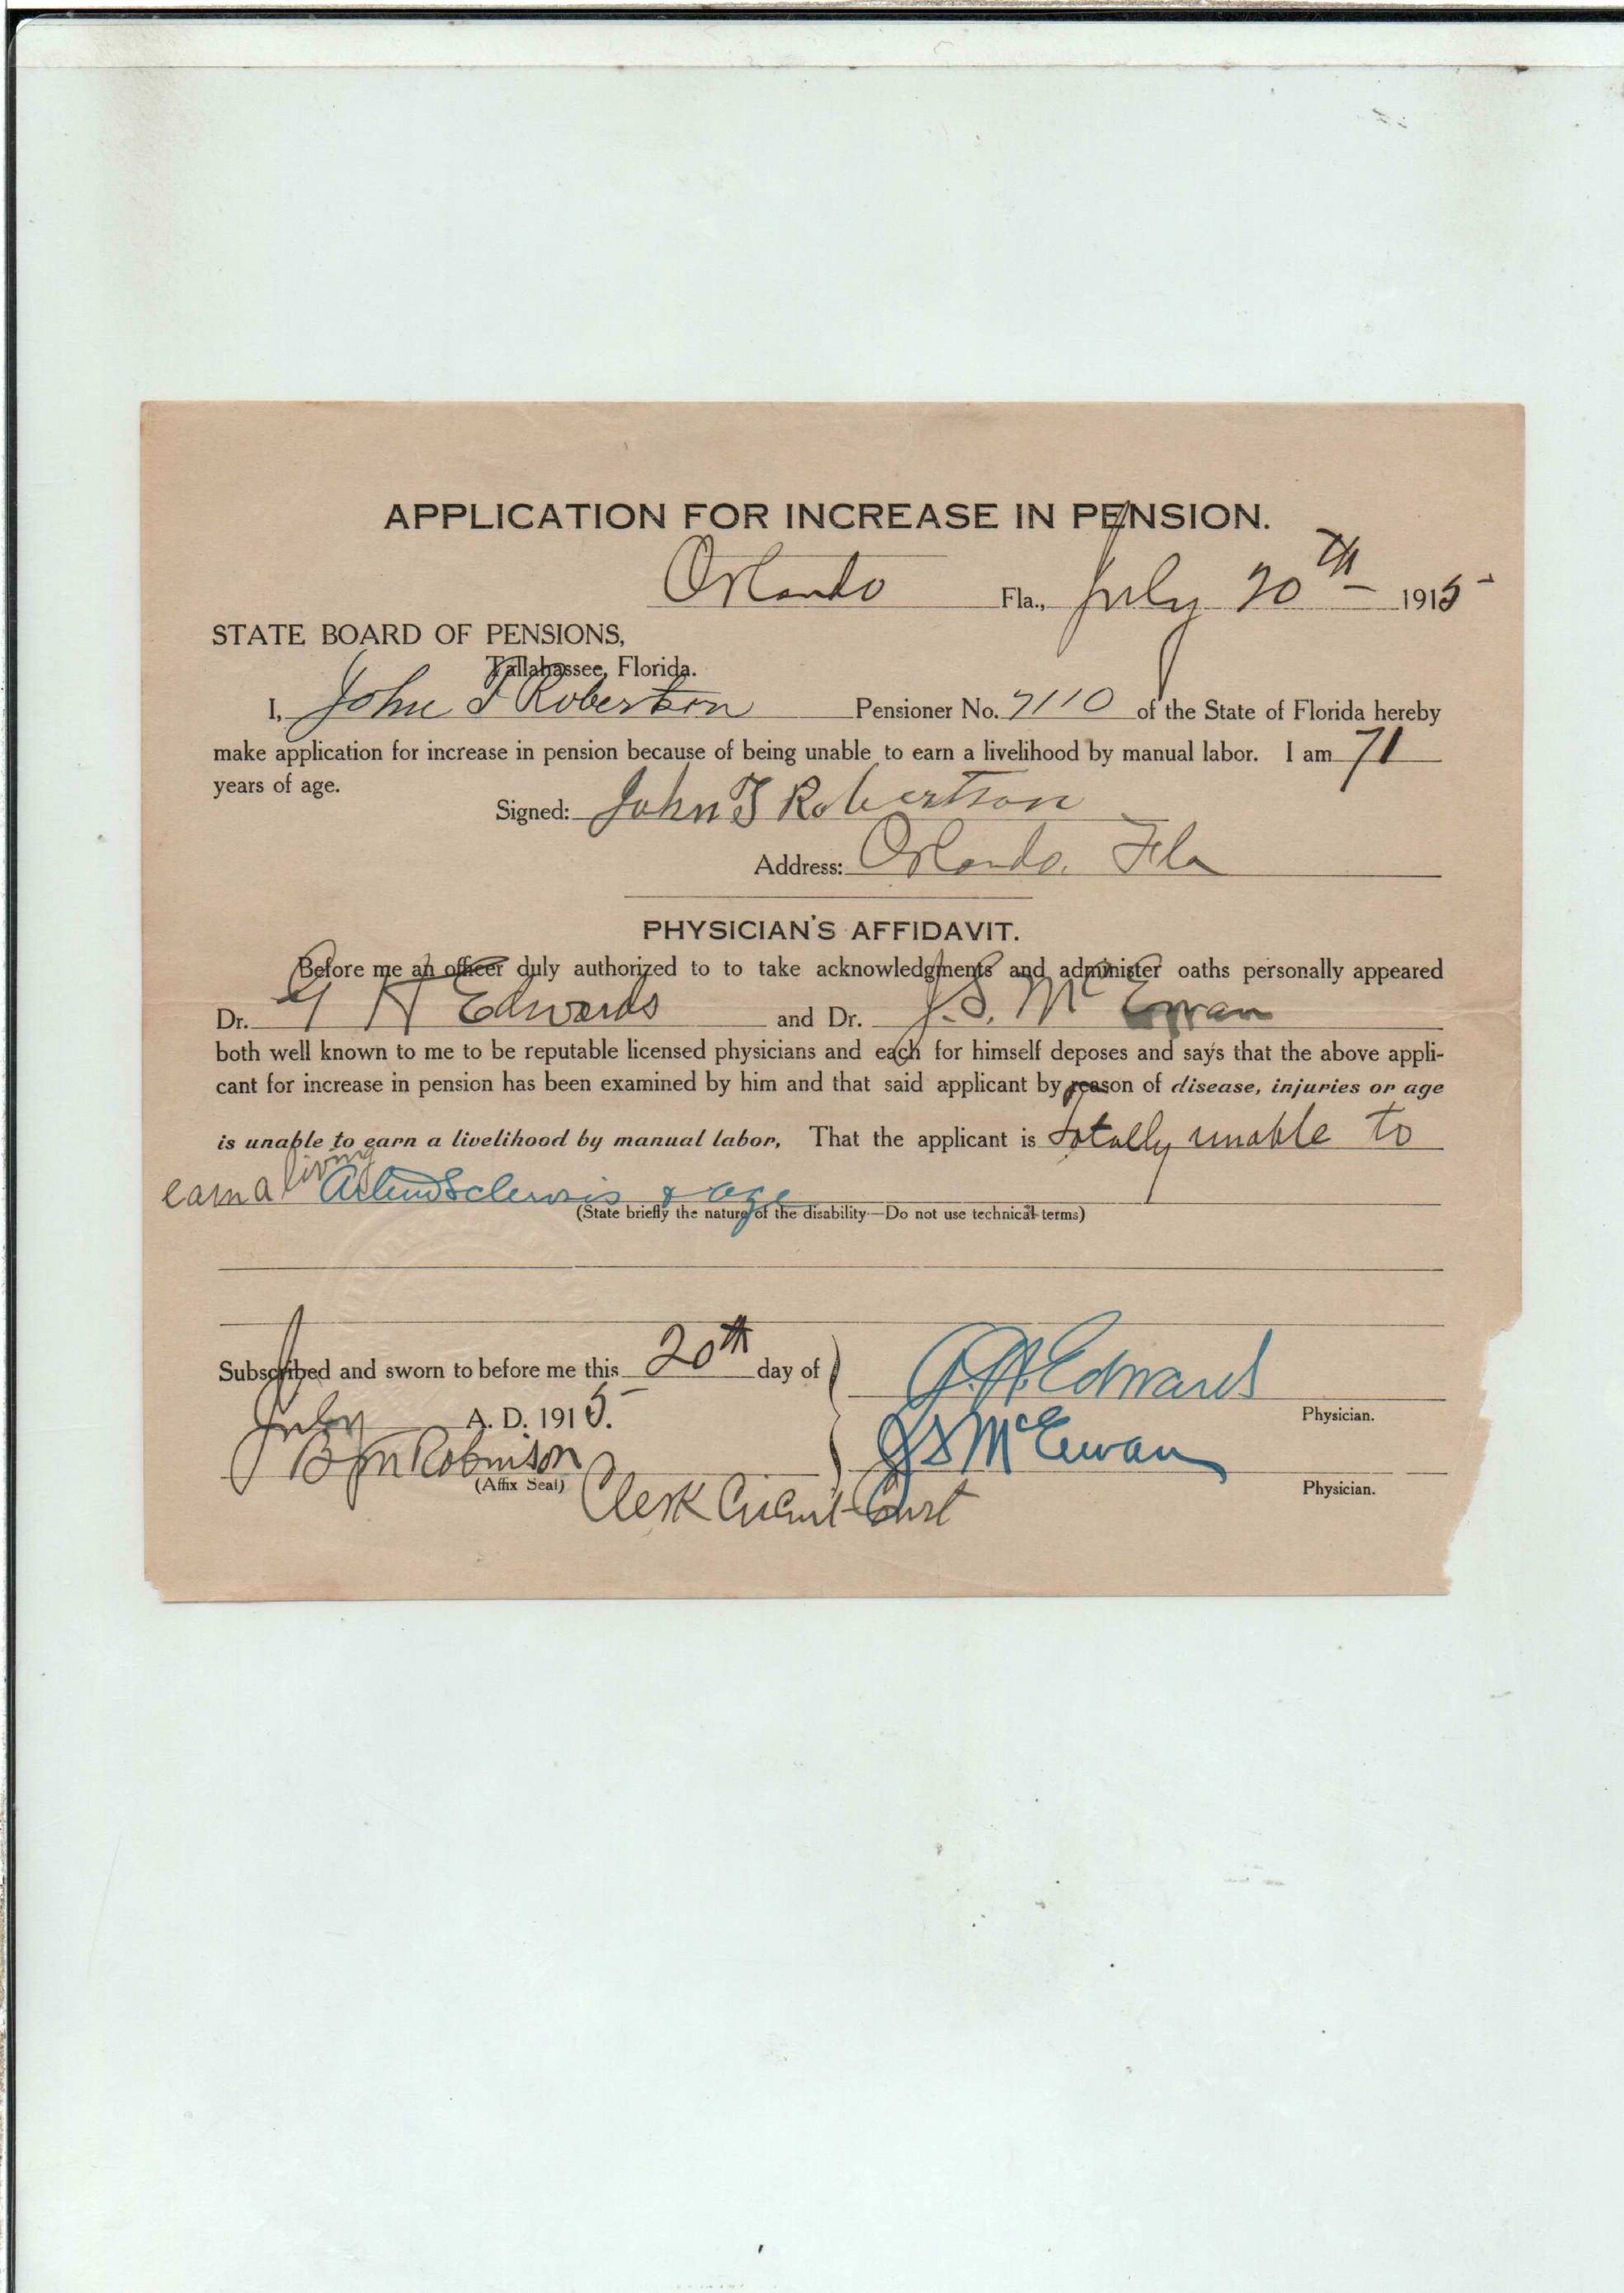 APPLICATION FOR INCREASE IN PENSION.
Orlando Fla., July 20th 1915
STATE BOARD OF PENSIONS,
Tallahassee, Florida.
I, John T Robertson Pensioner No. 7110 of the State of Florida hereby
make application for increase in pension because of being unable to earn a livelihood by manual labor. I am 71
years of age.
Signed: John T Robertson
Address: Orlando, Fla
PHYSICIAN'S AFFIDAVIT.
Before me an officer duly authorized to to take acknowledgments and administer oaths personally appeared
Dr. G H Edwards and Dr. J. S. McEwan
both well known to me to be reputable licensed physicians and each for himself deposes and says that the above appli-
cant for increase in pension has been examined by him and that said applicant by reason of disease, injuries or age
is unable to earn a livelihood by manual labor, That the applicant is totally unable to
earn a living Arteriosclerosis & age
(State briefly the nature of the disability—Do not use technical terms)
Subscribed and sworn to before me this 20th day of
July A. D. 1915.
B M Robinson
(Affix Seal)
Clerk Circuit Court
G. H. Edwards
Physician.
J S McEwan
Physician.